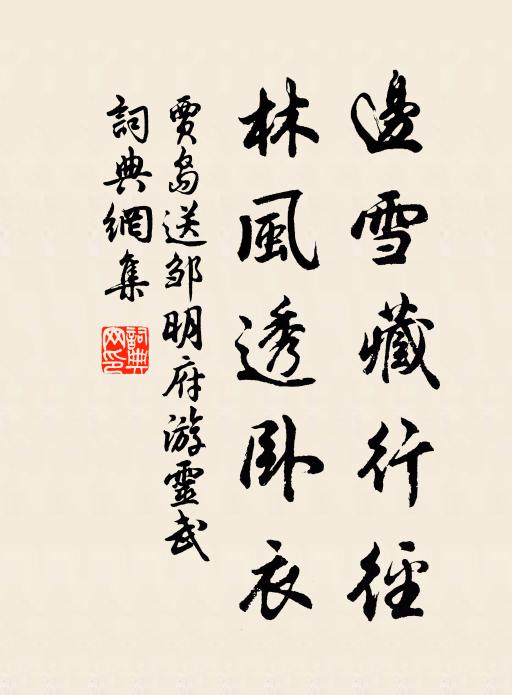 邊雪藏行徑
林風透卧衣
賈島送邹明府游靈武
詞典網集
詞典網印